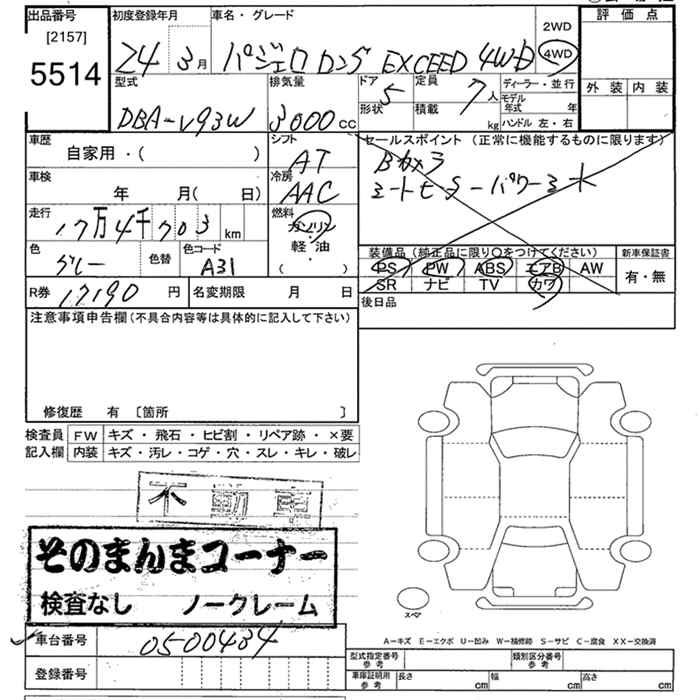 出品番号
[2157]
5514
初度登録年月
24 3月
車名・グレード
パジェロ ロング EXCEED 4WD
2WD
4WD
評価点
外装 内装
型式
DBA-V93W
排気量
3000cc
ドア 5
形状
定員 7人
積載 kg
ディーラー・並行
モデル年式 年
ハンドル 左・右
車歴
自家用・( )
シフト
AT
セールスポイント (正常に機能するものに限ります)
車検
年 月( 日)
冷房
AAC
走行
17万4千703km
燃料
ガソリン
軽・油
( )
色
グレー
色替
色コード
A31
装備品(純正品に限り○をつけてください)
PS PW ABS エアB AW
SR ナビ TV カワ
新車保証書
有・無
R券 17190円
名変期限 月 日
後日品
注意事項申告欄(不具合内容等は具体的に記入して下さい)
修復歴 有 〔箇所 〕
検査員記入欄
FW キズ・飛石・ヒビ割・リペア跡・×要
内装 キズ・汚レ・コゲ・穴・スレ・キレ・破レ
不動車
そのまんまコーナー
検査なし ノークレーム
スペア
車台番号
0500484
登録番号
A-キズ E-エクボ U-凹み W-補修跡 S-サビ C-腐食 XX-交換済
型式指定番号 参考
類別区分番号 参考
車庫証明用 参考
長さ cm 幅 cm 高さ cm